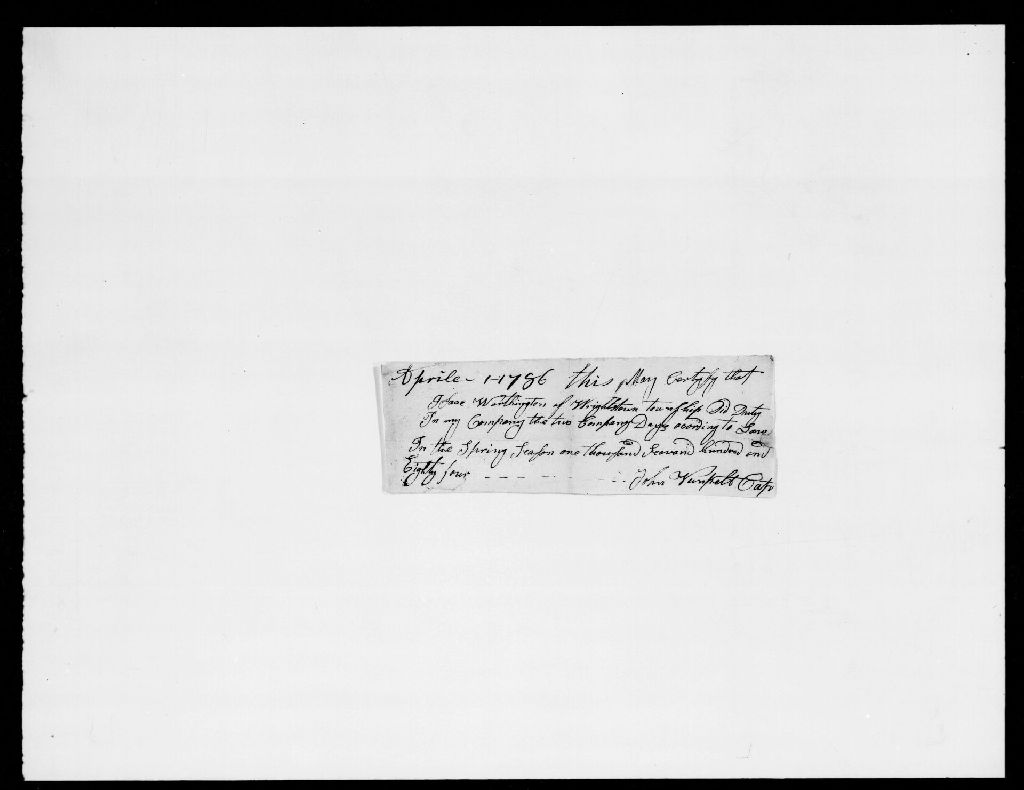 Aprile - 1-1786 this May Certyfy that
Isaac Worthington of Wrightstown township Did Duty
In my Company the two Company Days acording to Law
In the Spring Season one thousand Seavand hundred and
Eighty four - - - - - - John Vanpelt Capt